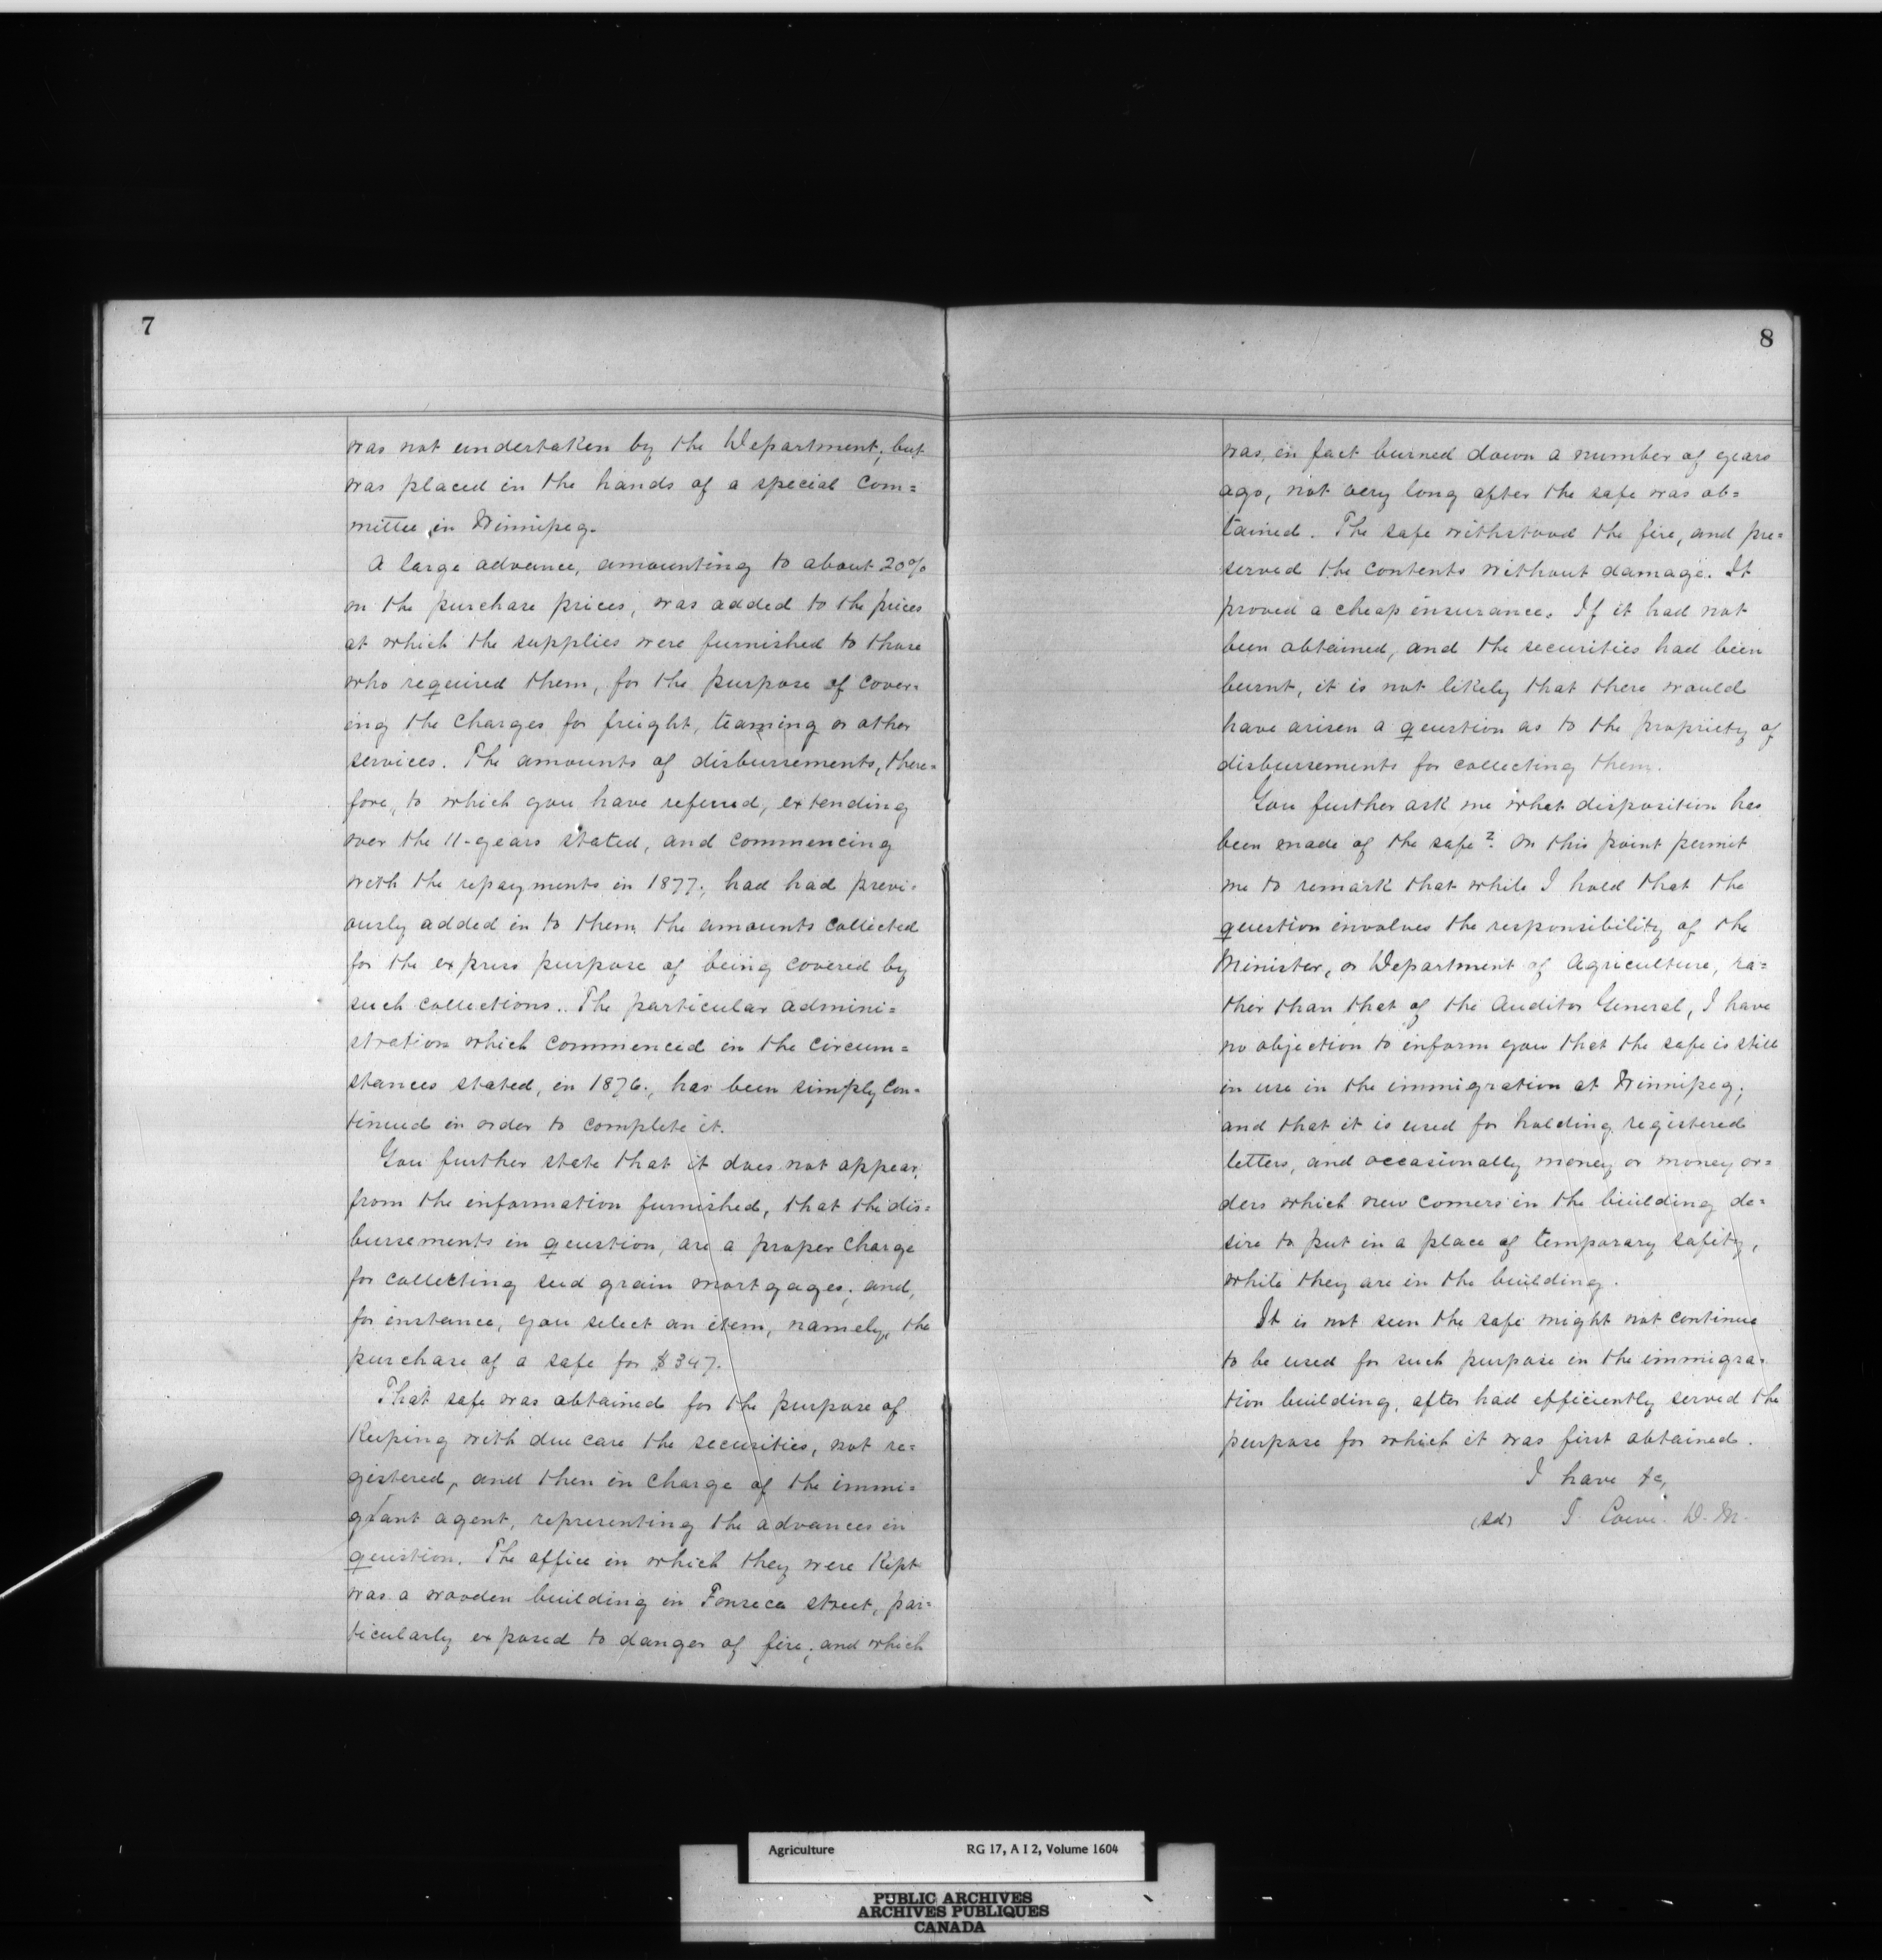 7
was not undertaken by the Department; but
was placed in the hands of a special com=
mittee, in Winnipeg.
A large advance, amounting to about 20%
on the purchase prices, was added to the prices
at which the supplies were furnished to those
who required them, for the purpose of cover=
ing the charges for freight, teaming or other
services. The amounts of disbursements, there=
fore, to which you have referred, extending
over the 11-years stated, and commencing
with the repayments in 1877, had had previ=
ously added in to them, the amounts collected
for the express purpose of being covered by
such collections. The particular admini=
stration which commenced in the circum=
stances stated, in 1876, has been simply con=
tinued in order to complete it.
You further state that it does not appear,
from the information furnished, that the dis=
bursements in question, are a proper charge
for collecting seed grain mortgages; and,
for instance, you select an item, namely, the
purchase of a safe for $347.
That safe was obtained for the purpose of
Keeping with due care the securities, not re=
gistered, and then in charge of the immi=
grant agent, representing the advances in
question. The office in which they were Kept
was a wooden building in Fonseca street, par=
ticularly exposed to danger of fire; and which
8
was, in fact burned down a number of years
ago, not very long after the safe was ob=
tained. The safe withstood the fire, and pre=
served the contents without damage. It
proved a cheap insurance. If it had not
been obtained, and the securities had been
burnt, it is not likely that there would
have arisen a question as to the propriety of
disbursements for collecting them.
You further ask me what disposition has
been made of the safe? On this point permit
me to remark that while I hold that the
question involves the responsibility of the
Minister, or Department of Agriculture, ra=
ther than that of the Auditor General, I have
no objection to inform you that the safe is still
in use in the immigration at Winnipeg;
and that it is used for holding registered
letters, and occasionally money or money or=
ders which new comers in the building de=
sire to put in a place of temporary safety,
while they are in the building.
It is not seen the safe might not continue
to be used for such purpose in the immigra=
tion building, after had efficiently served the
purpose for which it was first obtained.
I have &c,
(sd) J. Lowe. D. M.
Agriculture RG 17, A I 2, Volume 1604
PUBLIC ARCHIVES
ARCHIVES PUBLIQUES
CANADA